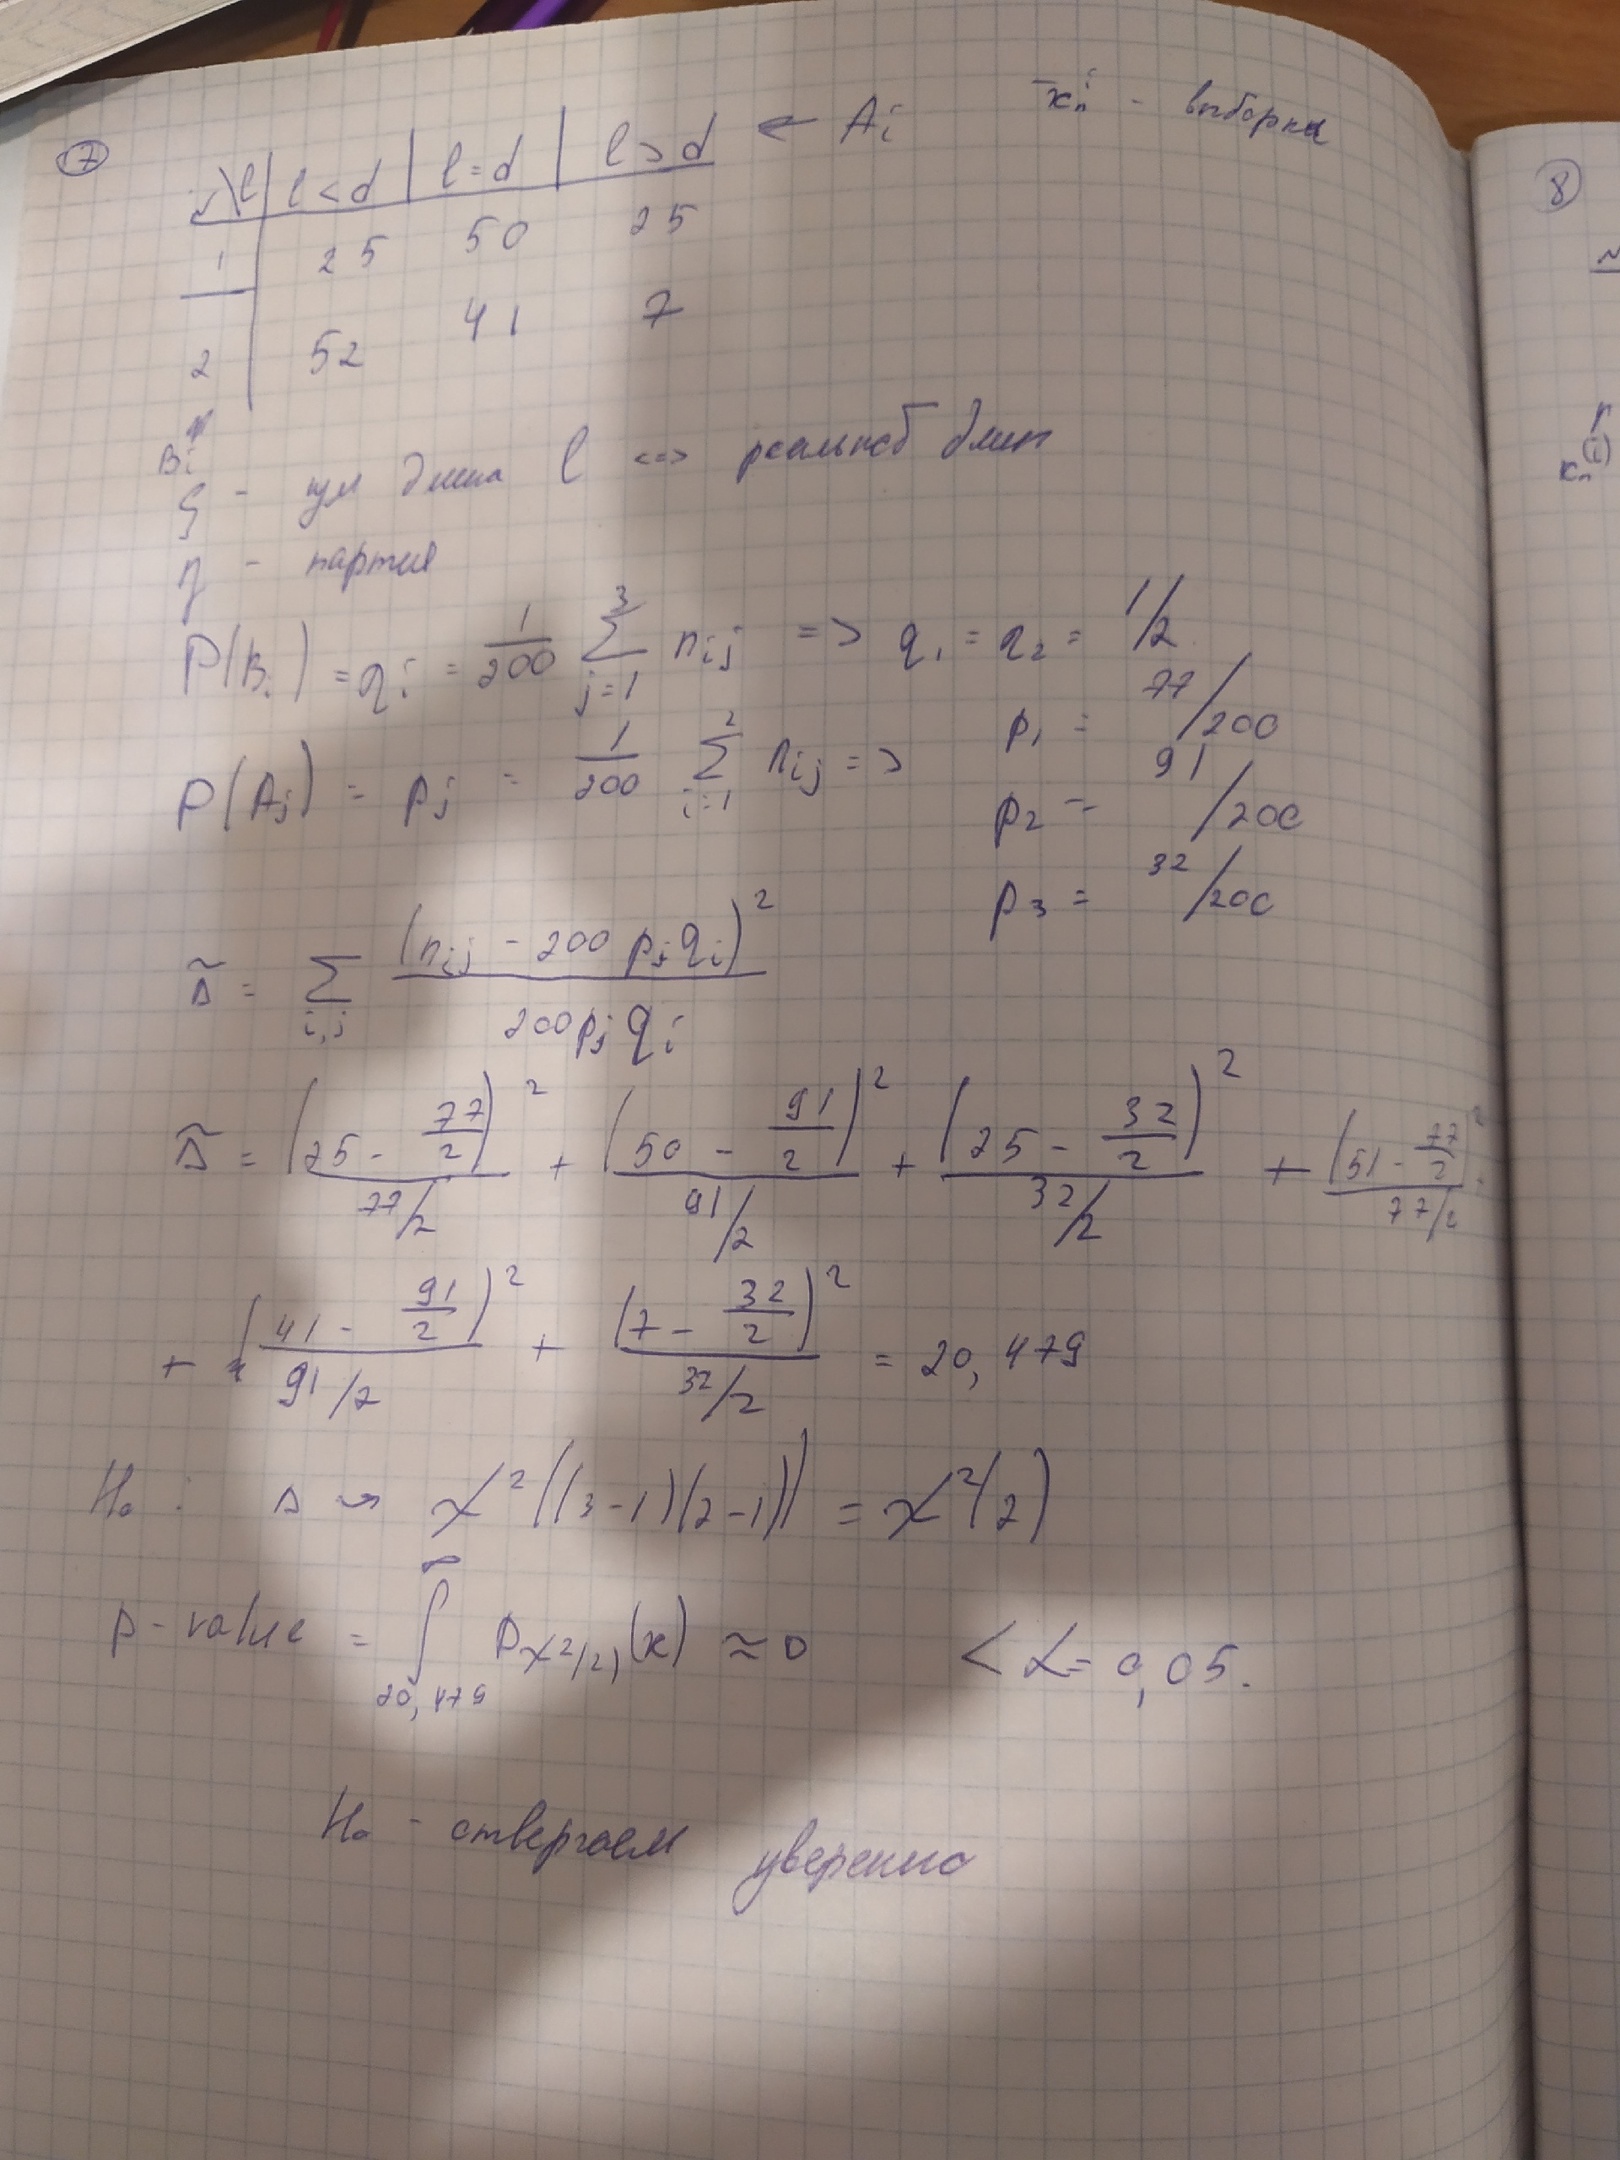 7
j\l | l < d | l = d | l > d ← Ai x̄ⁱn - выборка
1 25 50 25
2 52 41 7
Bi
ξ - изм длина l <=> реальной длин
η - партия
P(Bi) = qi = 1/200 Σ_{j=1}^{3} nij => q1 = q2 = 1/2
P(Aj) = pj = 1/200 Σ_{i=1}^{2} nij => p1 = 77/200
p2 = 91/200
p3 = 32/200
Δ̃ = Σ_{i,j} (nij - 200 pj qi)² / 200 pj qi
Δ̃ = (25 - 77/2)² / 77/2 + (50 - 91/2)² / 91/2 + (25 - 32/2)² / 32/2 + (51 - 77/2)² / 77/2
+ (41 - 91/2)² / 91/2 + (7 - 32/2)² / 32/2 = 20,479
H₀ : Δ ⇝ χ²((3-1)(2-1)) = χ²(2)
p-value = ∫_{20,479}^{∞} p_{χ²(2)}(x) ≈ 0 < α = 0,05.
H₀ - отвергаем уверенно
8
(i)